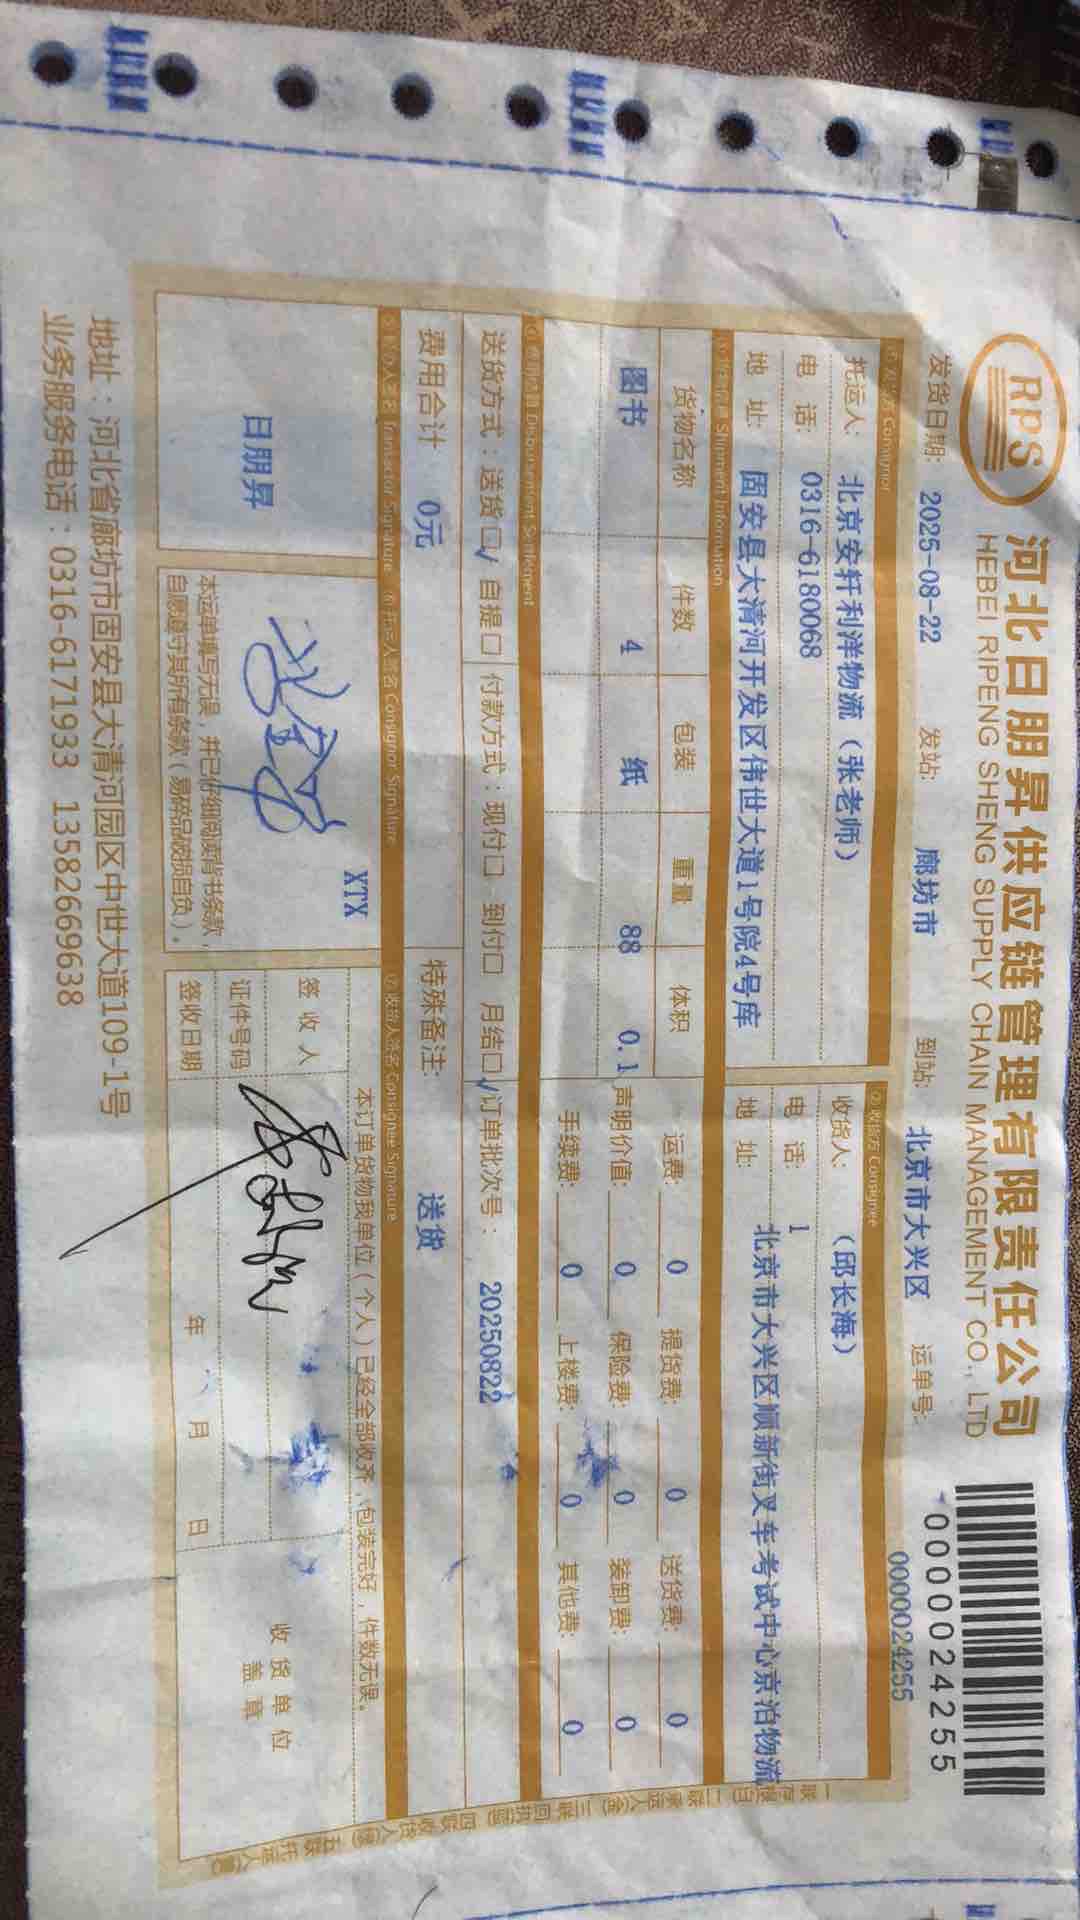 RPS
河北日朋昇供应链管理有限责任公司
HEBEI RIPENG SHENG SUPPLY CHAIN MANAGEMENT CO., LTD
0000024255
0000024255
发货日期: 2025-08-22 发站: 廊坊市 到站: 北京市大兴区 运单号:
①发货方 Consignor ②收货方 Consignee
托运人: 北京安轩利洋物流（张老师） 收货人: （邱长海）
电 话: 0316-6180068 电 话: 1
地 址: 固安县大清河开发区伟世大道1号院4号库 地 址: 北京市大兴区顺新街叉车考试中心京泊物流
Shipment Information
货物名称 件数 包装 重量 体积 运费: 0 提货费: 0 送货费: 0
图书 4 纸 88 0.1 声明价值: 0 保险费: 0 装卸费: 0
手续费: 0 上楼费: 0 其他费: 0
Disbursement Settlement
送货方式：送货□√ 自提□ 付款方式：现付□ 到付□ 月结□√ 订单批次号： 20250822
费用合计 0元 特殊备注: 送货
Consignor Signature ⑦收货人签名 Consignee Signature
日朋昇
XTX
本运单填写无误，并已仔细阅读背书条款，
自愿遵守其所有条款（易碎品破损自负）。
本订单货物我单位（个人）已经全部收齐，包装完好，件数无误。
签 收 人
证件号码
签收日期 年 月 日
收货单位
盖 章
地址：河北省廊坊市固安县大清河园区中世大道109-1号
业务服务电话：0316-6171933 13582669638